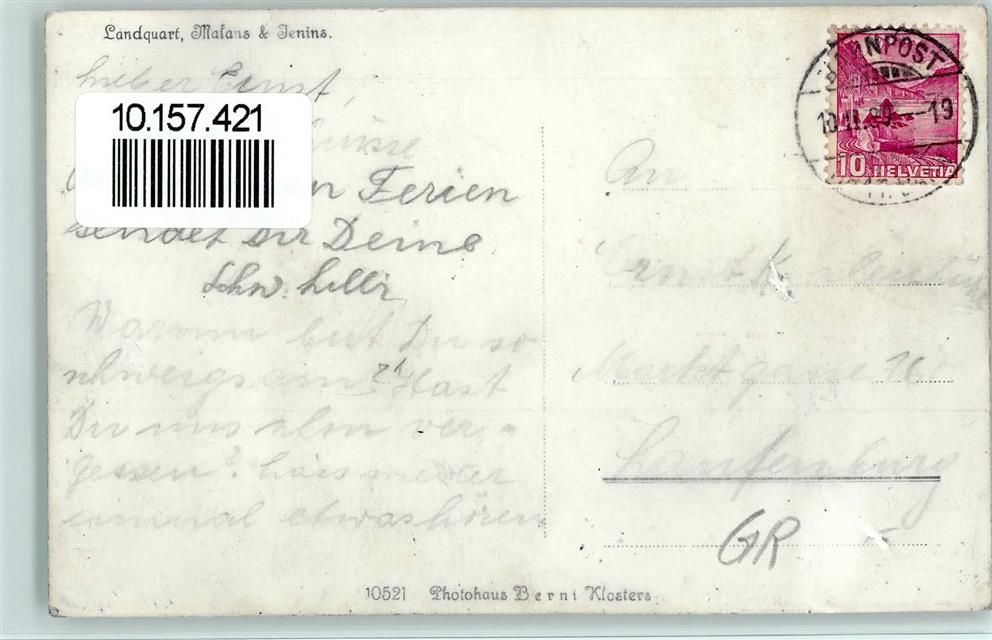 Landquart, Malans & Jenins.
Lieber Ernst,
10.157.421
Ferien
sendet Dir Deine
Schw. Lilly
Warum bist Du so
schweigsam? Hast
Du uns schon ver-
gessen? Lass wieder
einmal etwas hören
BAHNPOST
19
10 HELVETIA
An
Ernst
Marktgasse 167
Laufenburg
GR
10521 Photohaus Berni Klosters